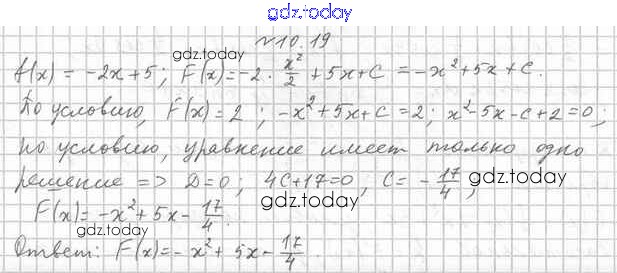 gdz.today
№10.19
gdz.today
f(x) = -2x+5; F(x)=-2·x²/2 + 5x+C = -x²+5x+C.
По условию, F(x)=2; -x²+5x+C=2; x²-5x-c+2=0;
по условию, уравнение имеет только одно
решение => D=0; 4C+17=0, C= -17/4;
gdz.today
F(x)=-x²+5x-17/4.
gdz.today
Ответ: F(x)=-x²+5x-17/4.
gdz.today